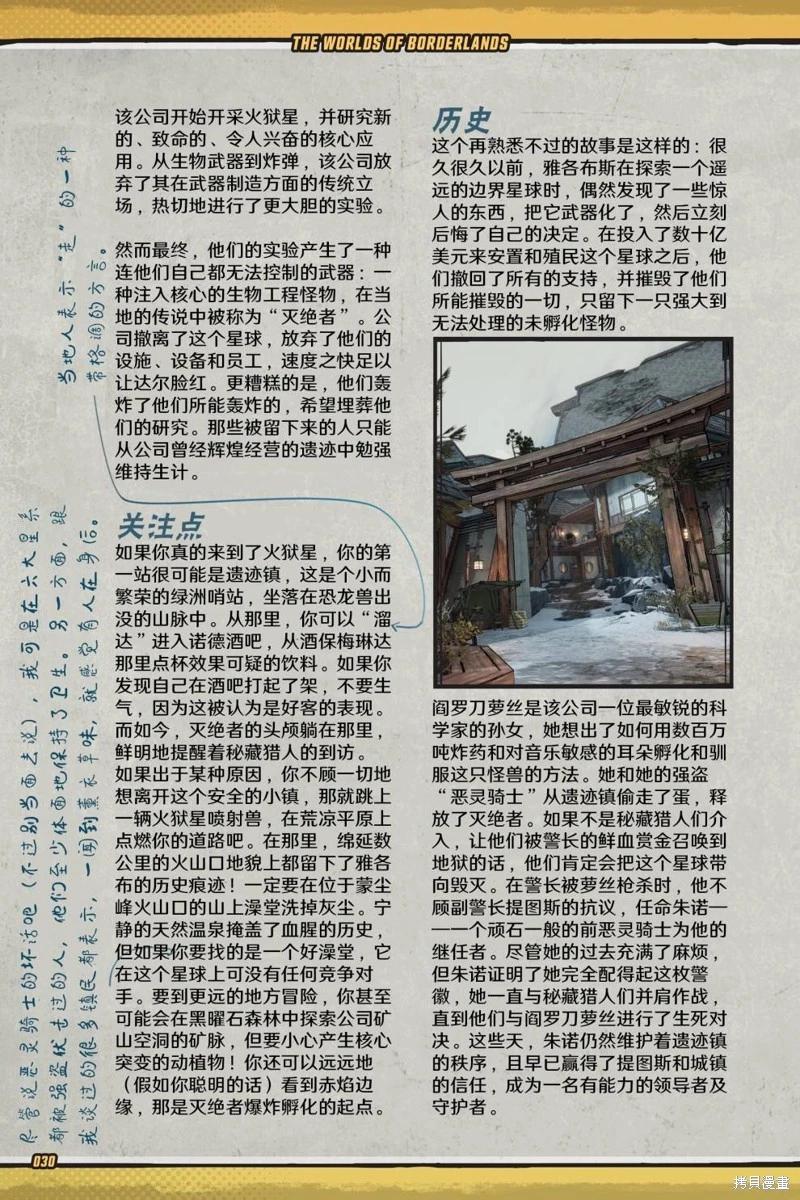 THE WORLDS OF BORDERLANDS
该公司开始开采火狱星，并研究新
的、致命的、令人兴奋的核心应
用。从生物武器到炸弹，该公司放
弃了其在武器制造方面的传统立
场，热切地进行了更大胆的实验。
然而最终，他们的实验产生了一种
连他们自己都无法控制的武器：一
种注入核心的生物工程怪物，在当
地的传说中被称为“灭绝者”。公
司撤离了这个星球，放弃了他们的
设施、设备和员工，速度之快足以
让达尔脸红。更糟糕的是，他们轰
炸了他们所能轰炸的，希望埋葬他
们的研究。那些被留下来的人只能
从公司曾经辉煌经营的遗迹中勉强
维持生计。
当地人表示“走”的一种
带格调的方言。
关注点
如果你真的来到了火狱星，你的第
一站很可能是遗迹镇，这是个小而
繁荣的绿洲哨站，坐落在恐龙兽出
没的山脉中。从那里，你可以“溜
达”进入诺德酒吧，从酒保梅琳达
那里点杯效果可疑的饮料。如果你
发现自己在酒吧打起了架，不要生
气，因为这被认为是好客的表现。
而如今，灭绝者的头颅躺在那里，
鲜明地提醒着秘藏猎人的到访。
如果出于某种原因，你不顾一切地
想离开这个安全的小镇，那就跳上
一辆火狱星喷射兽，在荒凉平原上
点燃你的道路吧。在那里，绵延数
公里的火山口地貌上都留下了雅各
布的历史痕迹！一定要在位于蒙尘
峰火山口的山上澡堂洗掉灰尘。宁
静的天然温泉掩盖了血腥的历史，
但如果你要找的是一个好澡堂，它
在这个星球上可没有任何竞争对
手。要到更远的地方冒险，你甚至
可能会在黑曜石森林中探索公司矿
山空洞的矿脉，但要小心产生核心
突变的动植物！你还可以远远地
（假如你聪明的话）看到赤焰边
缘，那是灭绝者爆炸孵化的起点。
尽管说恶灵骑士的坏话吧（不过别当面去说），我可是在六大星系
都被强盗伏击过的人，他们至少体面地保持了卫生。另一方面，跟
我谈过的很多镇民都表示，一闻到薰衣草味，就感觉有人在身后。
历史
这个再熟悉不过的故事是这样的：很
久很久以前，雅各布斯在探索一个遥
远的边界星球时，偶然发现了一些惊
人的东西，把它武器化了，然后立刻
后悔了自己的决定。在投入了数十亿
美元来安置和殖民这个星球之后，他
们撤回了所有的支持，并摧毁了他们
所能摧毁的一切，只留下一只强大到
无法处理的未孵化怪物。
阎罗刀萝丝是该公司一位最敏锐的科
学家的孙女，她想出了如何用数百万
吨炸药和对音乐敏感的耳朵孵化和驯
服这只怪兽的方法。她和她的强盗
“恶灵骑士”从遗迹镇偷走了蛋，释
放了灭绝者。如果不是秘藏猎人们介
入，让他们被警长的鲜血赏金召唤到
地狱的话，他们肯定会把这个星球带
向毁灭。在警长被萝丝枪杀时，他不
顾副警长提图斯的抗议，任命朱诺—
—一个顽石一般的前恶灵骑士为他的
继任者。尽管她的过去充满了麻烦，
但朱诺证明了她完全配得起这枚警
徽，她一直与秘藏猎人们并肩作战，
直到他们与阎罗刀萝丝进行了生死对
决。这些天，朱诺仍然维护着遗迹镇
的秩序，且早已赢得了提图斯和城镇
的信任，成为一名有能力的领导者及
守护者。
030
拷貝漫畫